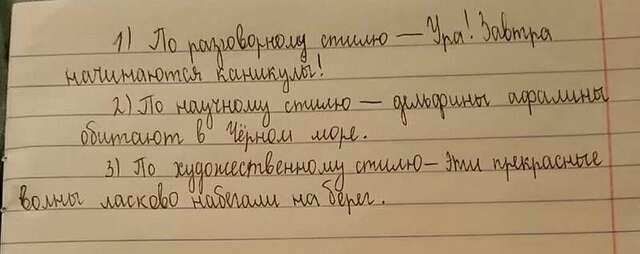 1) По разговорному стилю — Ура! Завтра
начинаются каникулы!
2) По научному стилю — дельфины афалины
обитают в Чёрном море.
3) По художественному стилю — эти прекрасные
волны ласково набегали на берег.